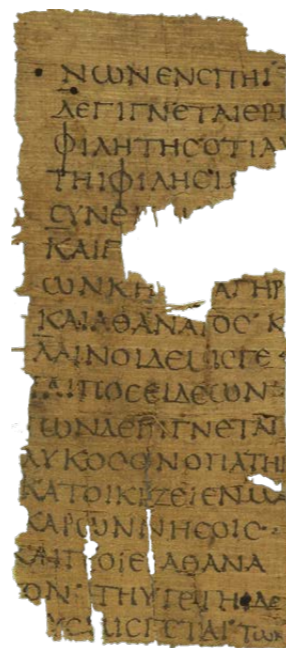 ΝΩΝΕΝΣΠΗΙ
ΔΕΓΙΓΝΕΤΑΙΕΡΙ
ΦΙΛΗΤΗΣΟΤΙΑΥ
ΤΗΙΦΙΛΗΣΙ
ΣΥΝΕ
ΚΑΙΓ
ΩΝΚΗ ΑΓΗΡ
ΚΑΙΑΘΑΝΑΤΟΣ Κ
ΛΑΙΝΟΙΔΕ ΙΣΓΕ
ΠΟΣΕΙΔΕΩΝ
ΩΝΔΕΓΙΓΝΕΤΑΙ
ΛΥΚΟΣΟΝΟΠΑΤΗ
ΚΑΤΟΙΚΙΖΕΙΕΝΜΑ
ΚΑΡΩΝΝΗΣΟΙΣ
ΚΑΙΠΟΙΕΙΑΘΑΝΑ
ΟΝ ΤΗΥΓΕΤΗΙΔΕ
ΥΣ ΜΙΣΓΕΤΑΙ ΤΩΝ